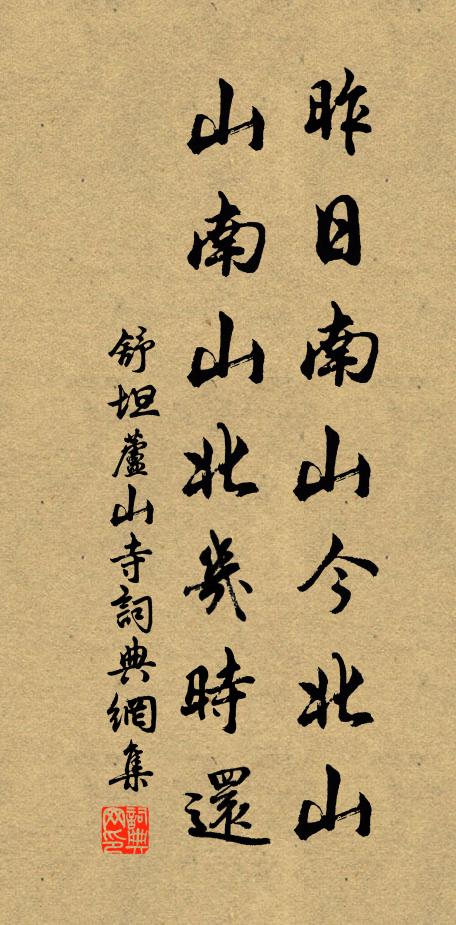 昨日南山今北山
山南山北幾時還
舒坦蘆山寺詞典網集
詞典网印